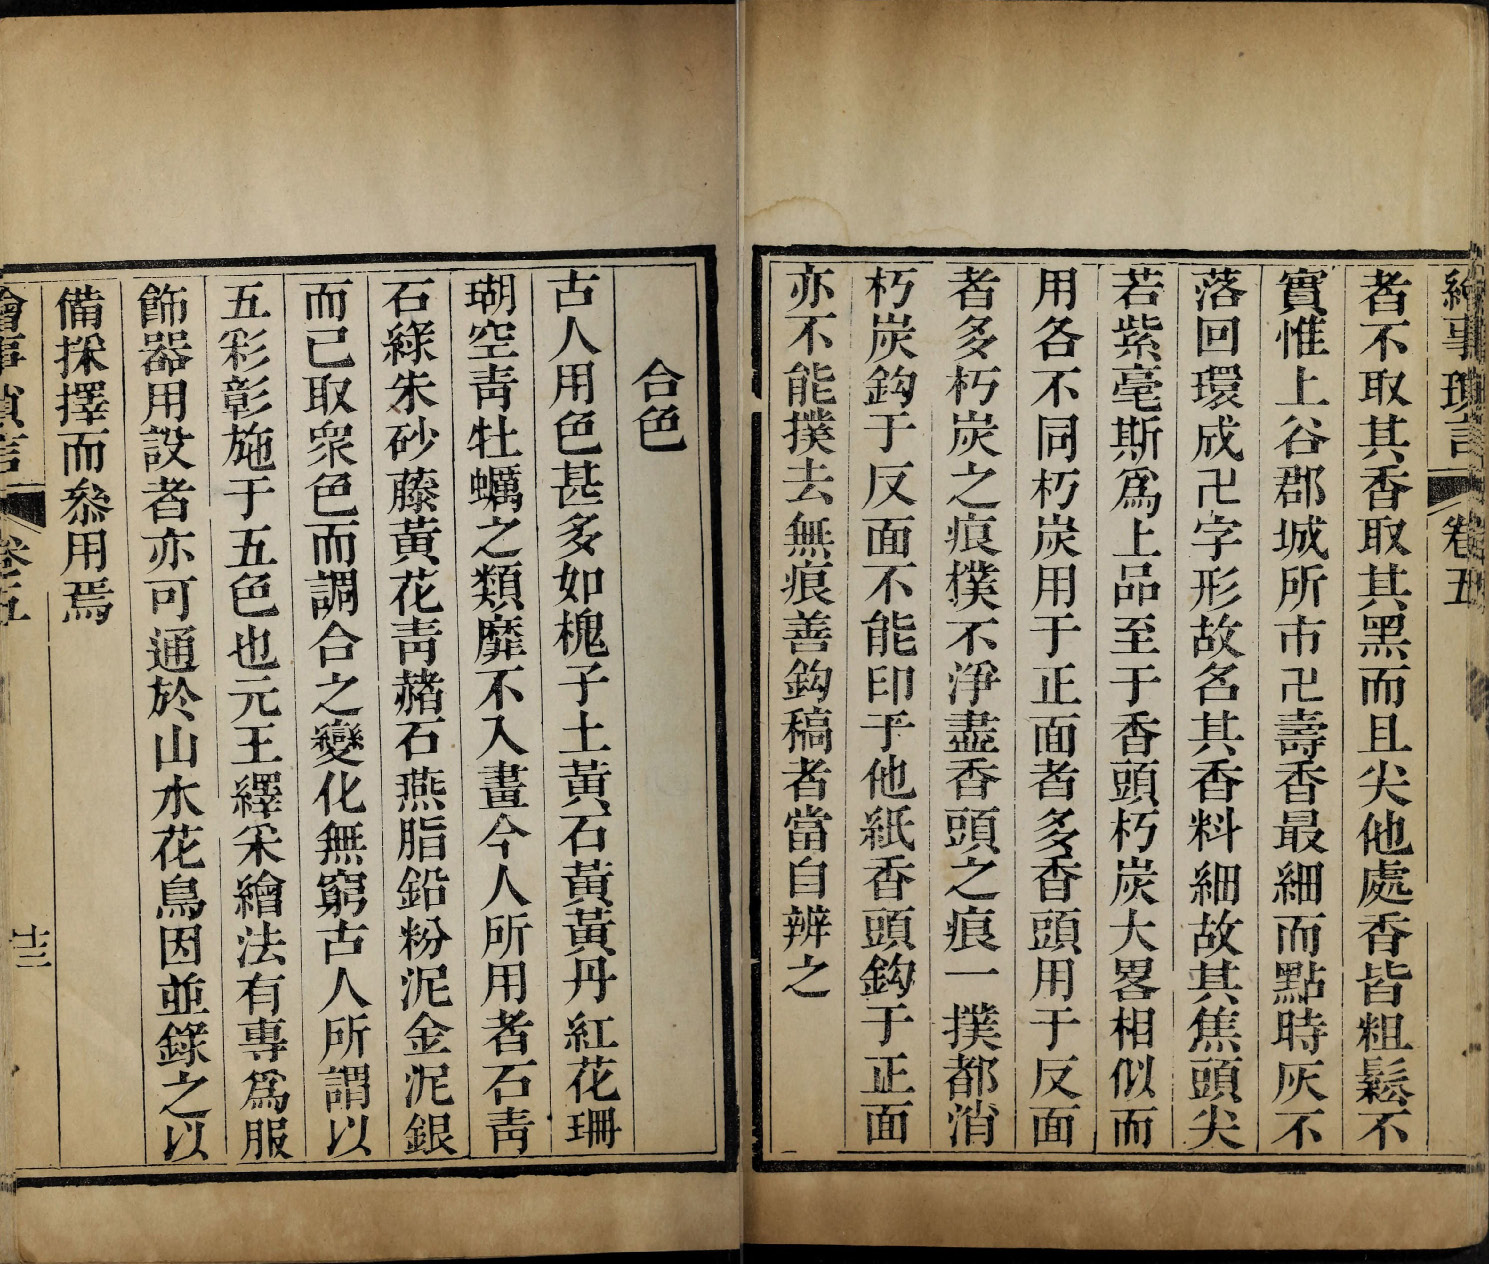 繪事瑣言 卷五
者不取其香取其黑而且尖他處香皆粗鬆不
實惟上谷郡城所市卍壽香最細而點時灰不
落回環成卍字形故名其香料細故其焦頭尖
若紫毫斯為上品至于香頭朽炭大畧相似而
用各不同朽炭用于正面者多香頭用于反面
者多朽炭之痕撲不淨盡香頭之痕一撲都消
朽炭鈎于反面不能印于他紙香頭鈎于正面
亦不能撲去無痕善鈎稿者當自辨之
合色
古人用色甚多如槐子土黃石黃黃丹紅花珊
瑚空靑牡蠣之類靡不入畫今人所用者石靑
石綠朱砂藤黃花靑赭石燕脂鉛粉泥金泥銀
而已取衆色而調合之變化無窮古人所謂以
五彩彰施于五色也元王繹采繪法有專爲服
飾器用設者亦可通於山水花鳥因並錄之以
備採擇而叅用焉
繪事瑣言 卷五 十三